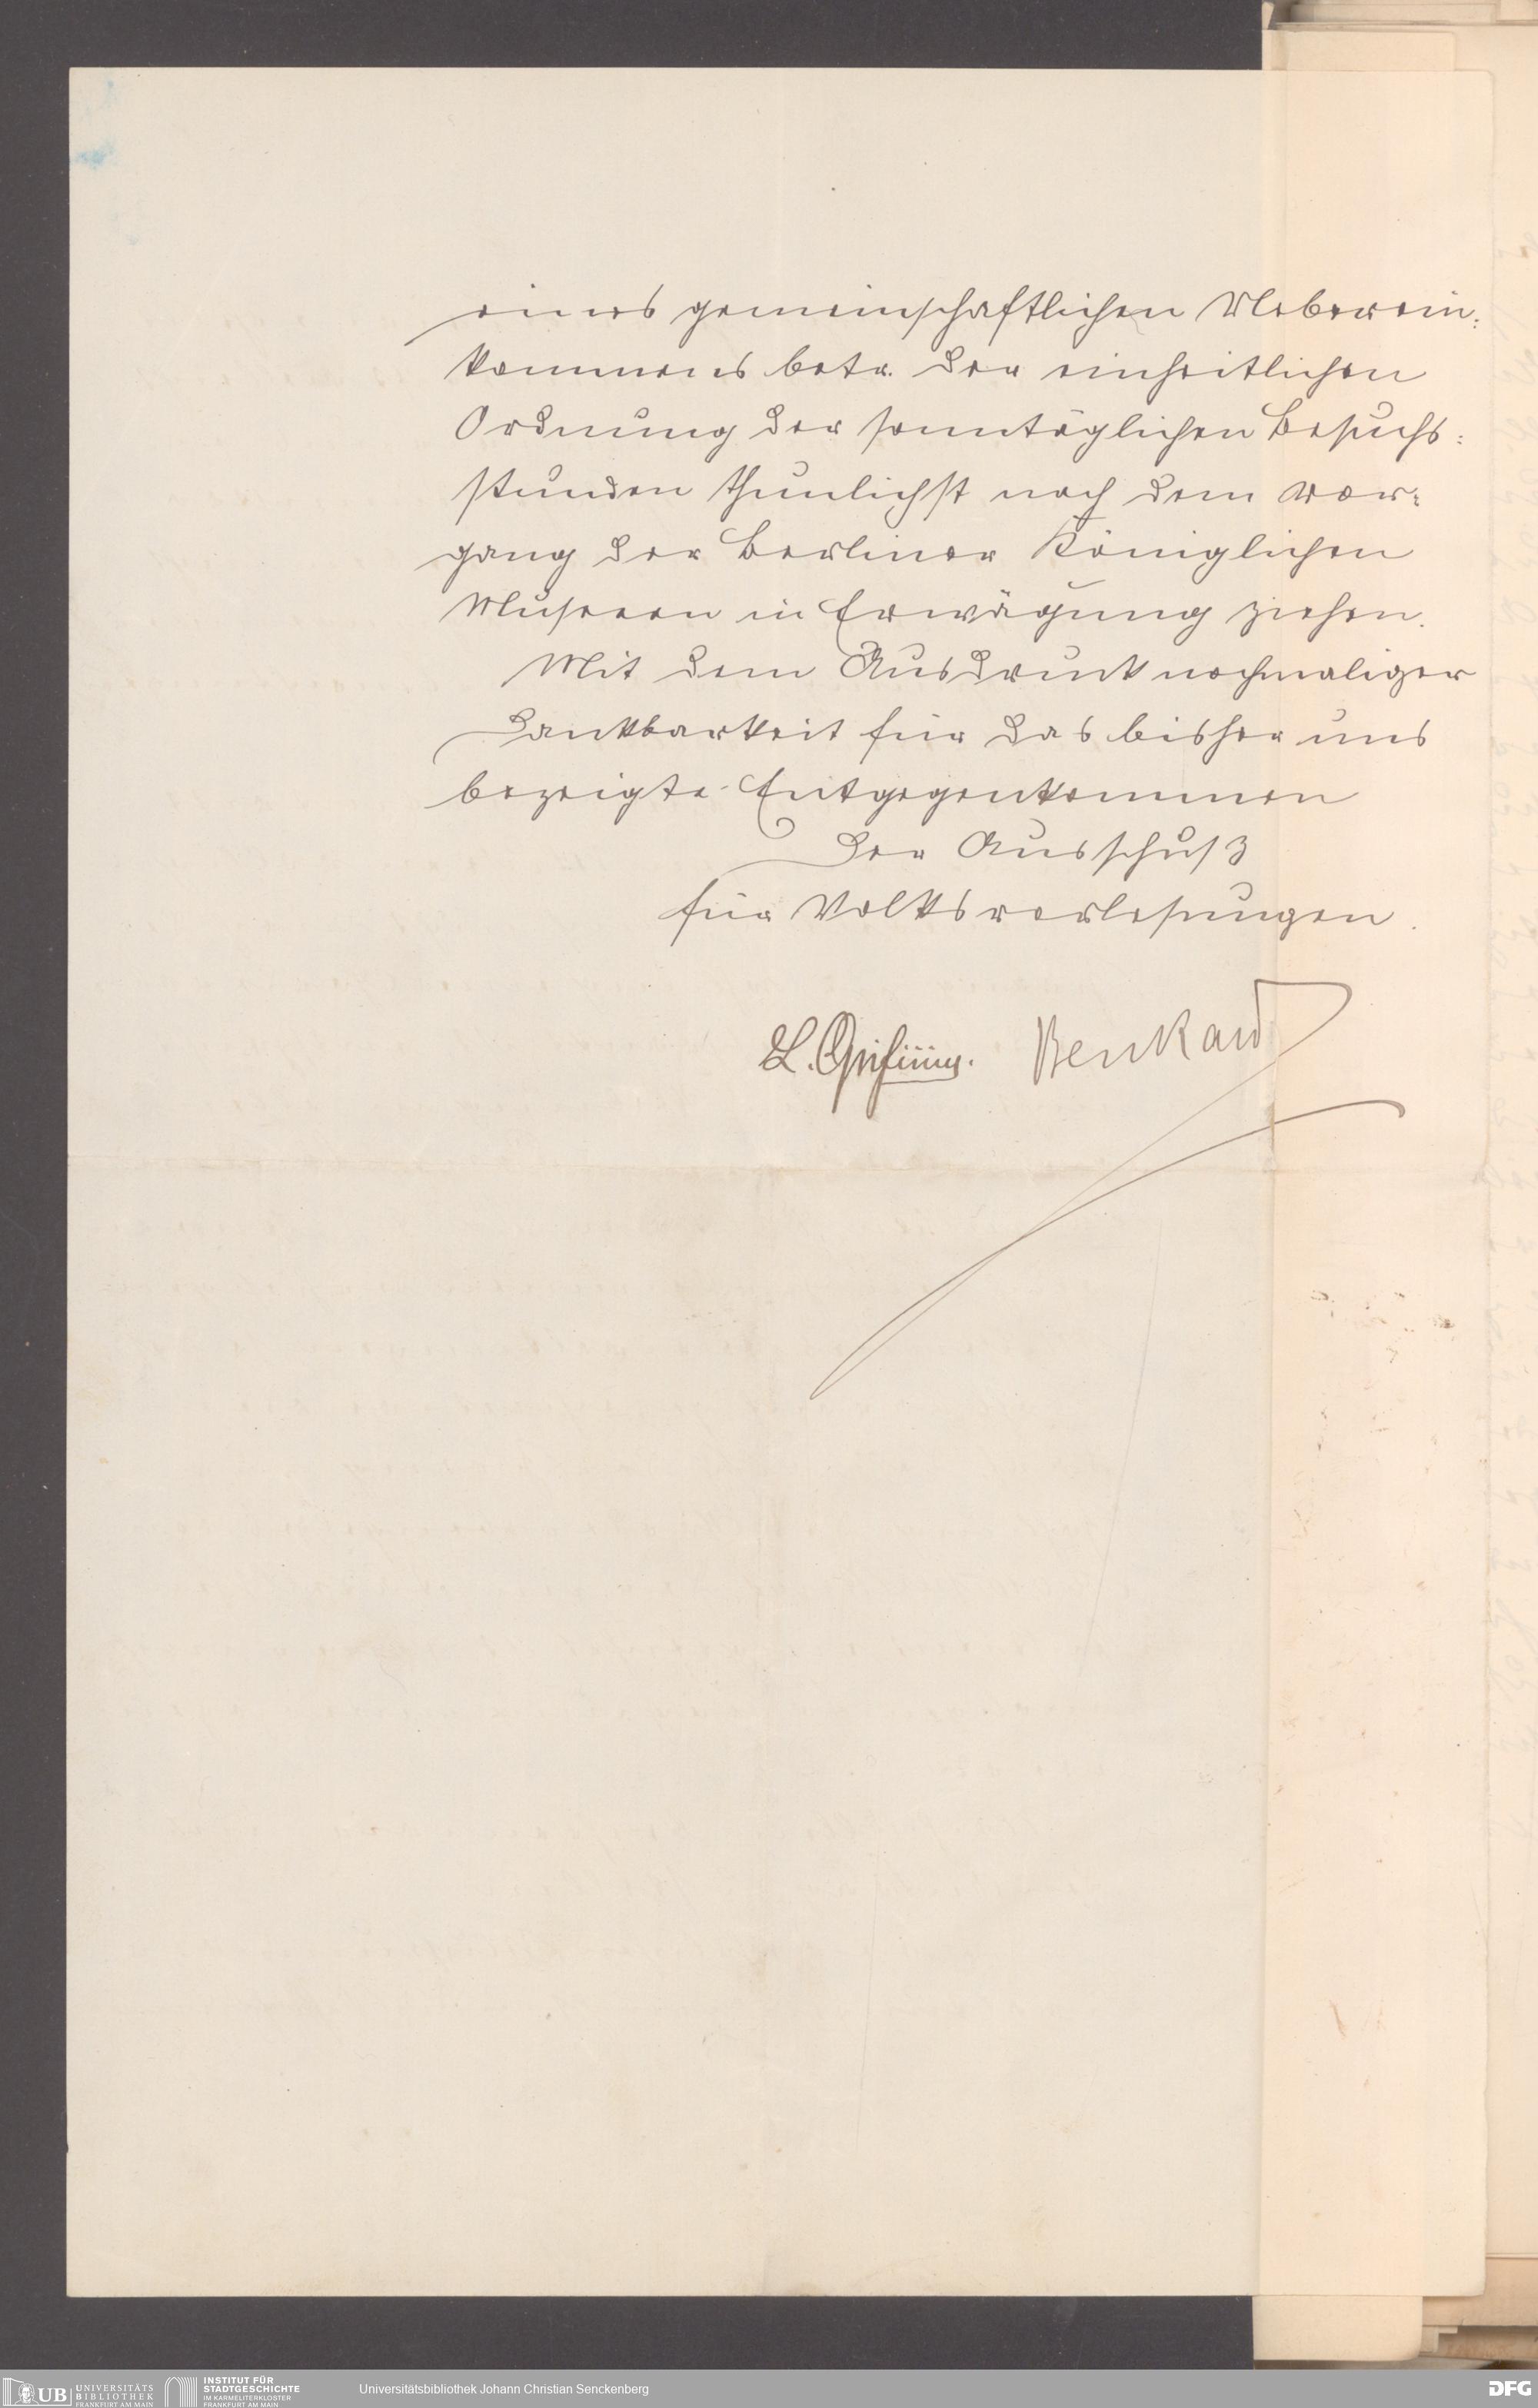 eines gemeinschaftlichen Ueberein:
kommens betr. der einheitlichen
Ordnung der sonntäglichen Besuchs:
stunden thunlichst nach dem Vor:
gang der Berliner Königlichen
Museeen in Erwägung ziehen.
Mit dem Ausdruck nochmaliger
Dankbarkeit für das bisher uns
bezeigte Entgegenkommen
Der Ausschuß
für Volksvorlesungen.
L. Opificius. Benkard
UB UNIVERSITÄTS BIBLIOTHEK FRANKFURT AM MAIN
INSTITUT FÜR STADTGESCHICHTE IM KARMELITERKLOSTER FRANKFURT AM MAIN
Universitätsbibliothek Johann Christian Senckenberg
DFG